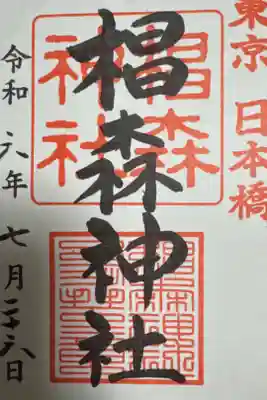 東京 日本橋
椙森神社
椙森
神社
令和六年 七月二十六日